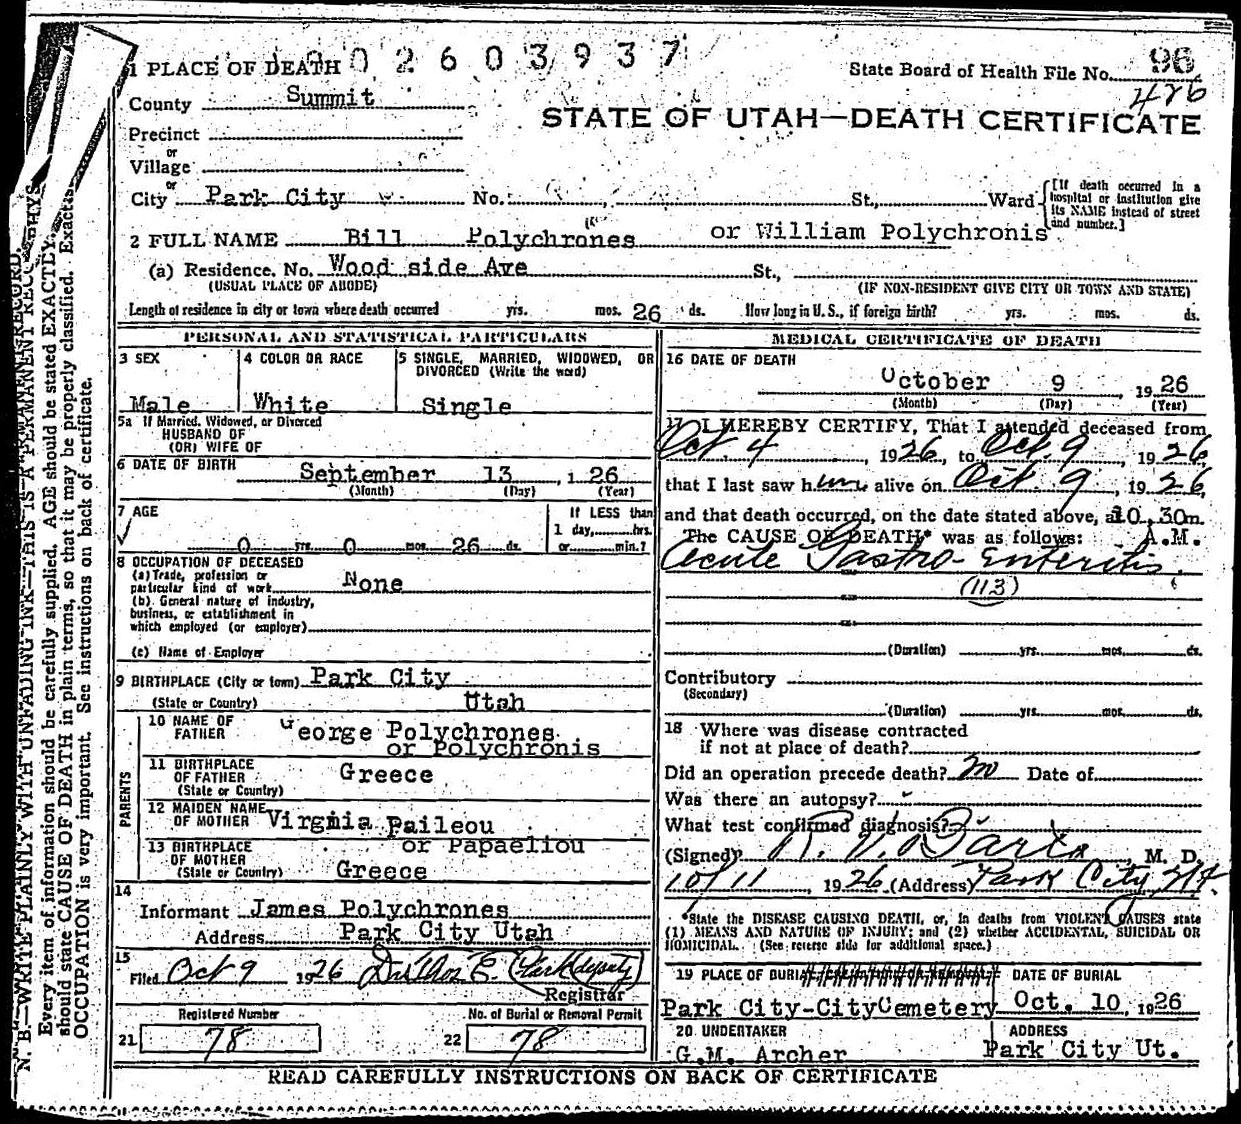 002603937
State Board of Health File No. 96
426
1 PLACE OF DEATH
County Summit
STATE OF UTAH—DEATH CERTIFICATE
Precinct
or
Village
or
City Park City No. St., Ward
[If death occurred in a hospital or institution give its NAME instead of street and number.]
2 FULL NAME Bill Polychrones or William Polychronis
(a) Residence. No. Wood side Ave St.,
(USUAL PLACE OF ABODE) (IF NON-RESIDENT GIVE CITY OR TOWN AND STATE)
Length of residence in city or town where death occurred yrs. mos. 26 ds. How long in U. S., if foreign birth? yrs. mos. ds.
PERSONAL AND STATISTICAL PARTICULARS
3 SEX
Male
4 COLOR OR RACE
White
5 SINGLE, MARRIED, WIDOWED, OR
DIVORCED (Write the word)
Single
5a If Married, Widowed, or Divorced
HUSBAND OF
(OR) WIFE OF
6 DATE OF BIRTH September 13, 1 26
(Month) (Day) (Year)
7 AGE
0 yrs. 0 mos. 26 ds.
If LESS than
1 day, hrs.
or min.?
8 OCCUPATION OF DECEASED
(a) Trade, profession or
particular kind of work None
(b) General nature of industry,
business, or establishment in
which employed (or employer)
(c) Name of Employer
9 BIRTHPLACE (City or town) Park City
(State or Country) Utah
PARENTS
10 NAME OF
FATHER George Polychrones
or Polychronis
11 BIRTHPLACE
OF FATHER Greece
(State or Country)
12 MAIDEN NAME
OF MOTHER Virgnia Paileou
or Papaeliou
13 BIRTHPLACE
OF MOTHER
(State or Country) Greece
14
Informant James Polychrones
Address Park City Utah
15
Filed Oct 9 1926 Dr Thos E. Clark deputy
Registrar
Registered Number No. of Burial or Removal Permit
21 78 22 78
MEDICAL CERTIFICATE OF DEATH
16 DATE OF DEATH
October 9, 1926
(Month) (Day) (Year)
17 I HEREBY CERTIFY, That I attended deceased from
Oct. 4, 1926, to Oct. 9, 1926,
that I last saw him alive on Oct. 9, 1926,
and that death occurred, on the date stated above, at 10,30m.
The CAUSE OF DEATH* was as follows: A.M.
Acute Gastro-enteritis.
(113)
(Duration) yrs. mos. ds.
Contributory
(Secondary)
(Duration) yrs. mos. ds.
18 Where was disease contracted
if not at place of death?
Did an operation precede death? no Date of
Was there an autopsy?
What test confirmed diagnosis?
(Signed) , M. D.
10/11, 1926 (Address) Park City Ut.
*State the DISEASE CAUSING DEATH, or, in deaths from VIOLENT CAUSES state
(1) MEANS AND NATURE OF INJURY; and (2) whether ACCIDENTAL, SUICIDAL OR
HOMICIDAL. (See reverse side for additional space.)
19 PLACE OF BURIAL DATE OF BURIAL
Park City-CityCemetery Oct. 10, 1926
20 UNDERTAKER ADDRESS
G.M. Archer Park City Ut.
READ CAREFULLY INSTRUCTIONS ON BACK OF CERTIFICATE
N. B.—WRITE PLAINLY WITH UNFADING INK—THIS IS A PERMANENT RECORD.
Every item of information should be carefully supplied. AGE should be stated EXACTLY. PHYS
should state CAUSE OF DEATH in plain terms, so that it may be properly classified. Exact
OCCUPATION is very important. See instructions on back of certificate.